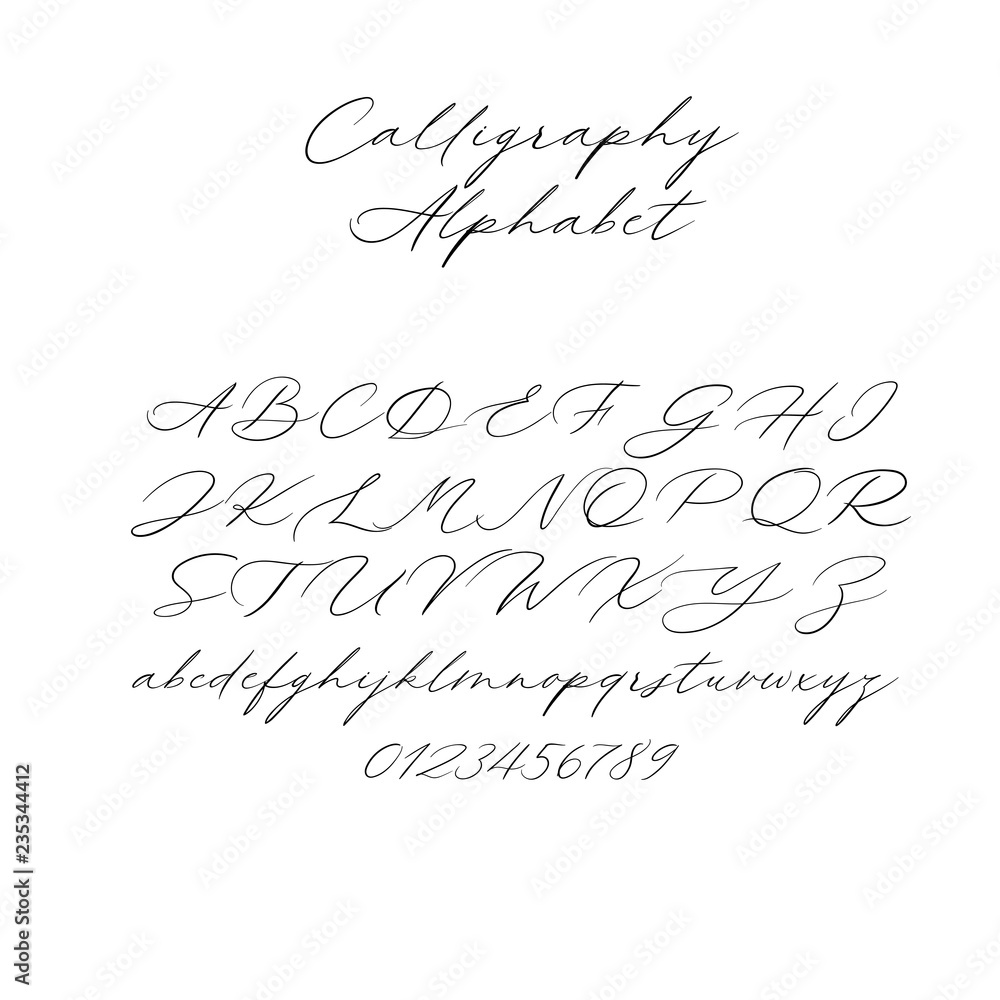 Calligraphy
Alphabet
A B C D E F G H I
J K L M N O P Q R
S T U V W X Y Z
abcdefghijklmnopqrstuvwxyz
0123456789
Adobe Stock | #235344412
Adobe Stock